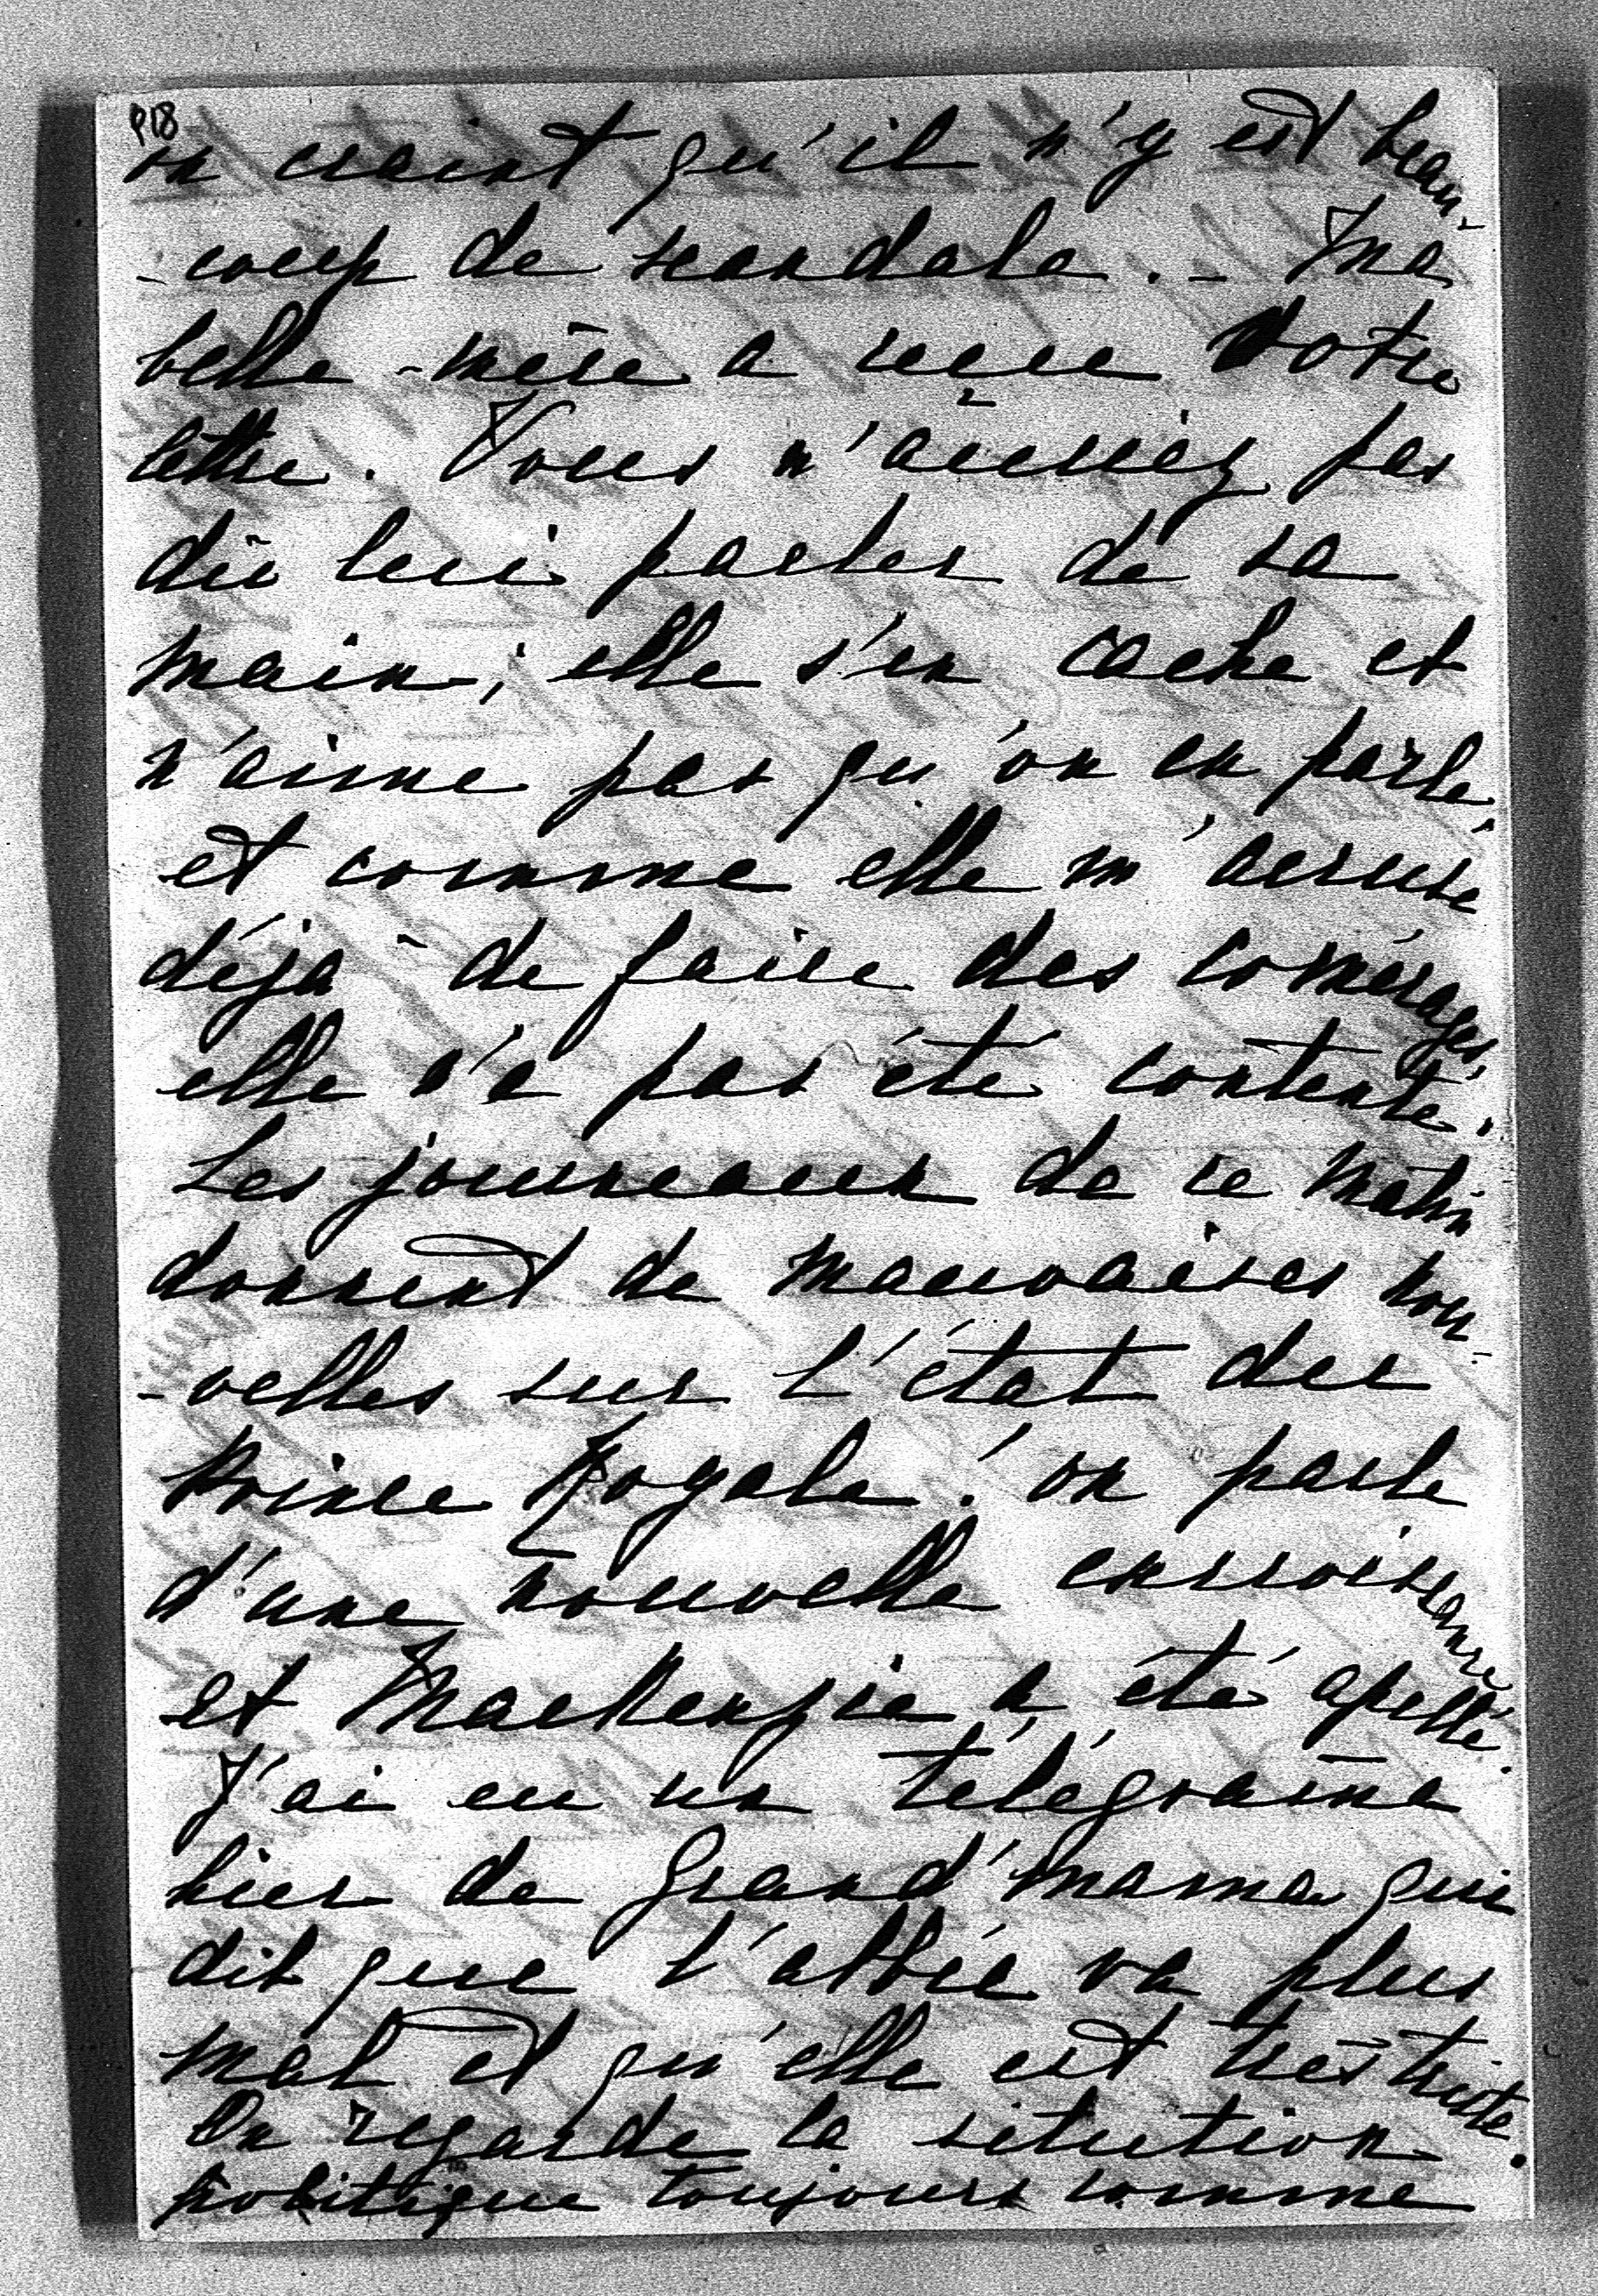 918
on craint qu'il n'y est beau-
-coup de scandale. - Ma
belle-mère a reçue votre
lettre. Vous n'auriez pas
dû lui parler de sa
main; elle s'en cache et
n'aime pas qu'on en parle,
et comme elle m'accuse
déjà de faire des comérages,
elle n'a pas été contente.
Les journeaux de ce matin
donnent de mauvaises nou-
-velles sur l'état du
Prince Royale! on parle
d'une nouvelle exroissance
et MacKenzie a été apellé.
J'ai eu un télégrame
hier de Grand'mama qui
dit que l'abbée va plus
mal et qu'elle est très triste.
On regarde la sitution
politique toujours comme